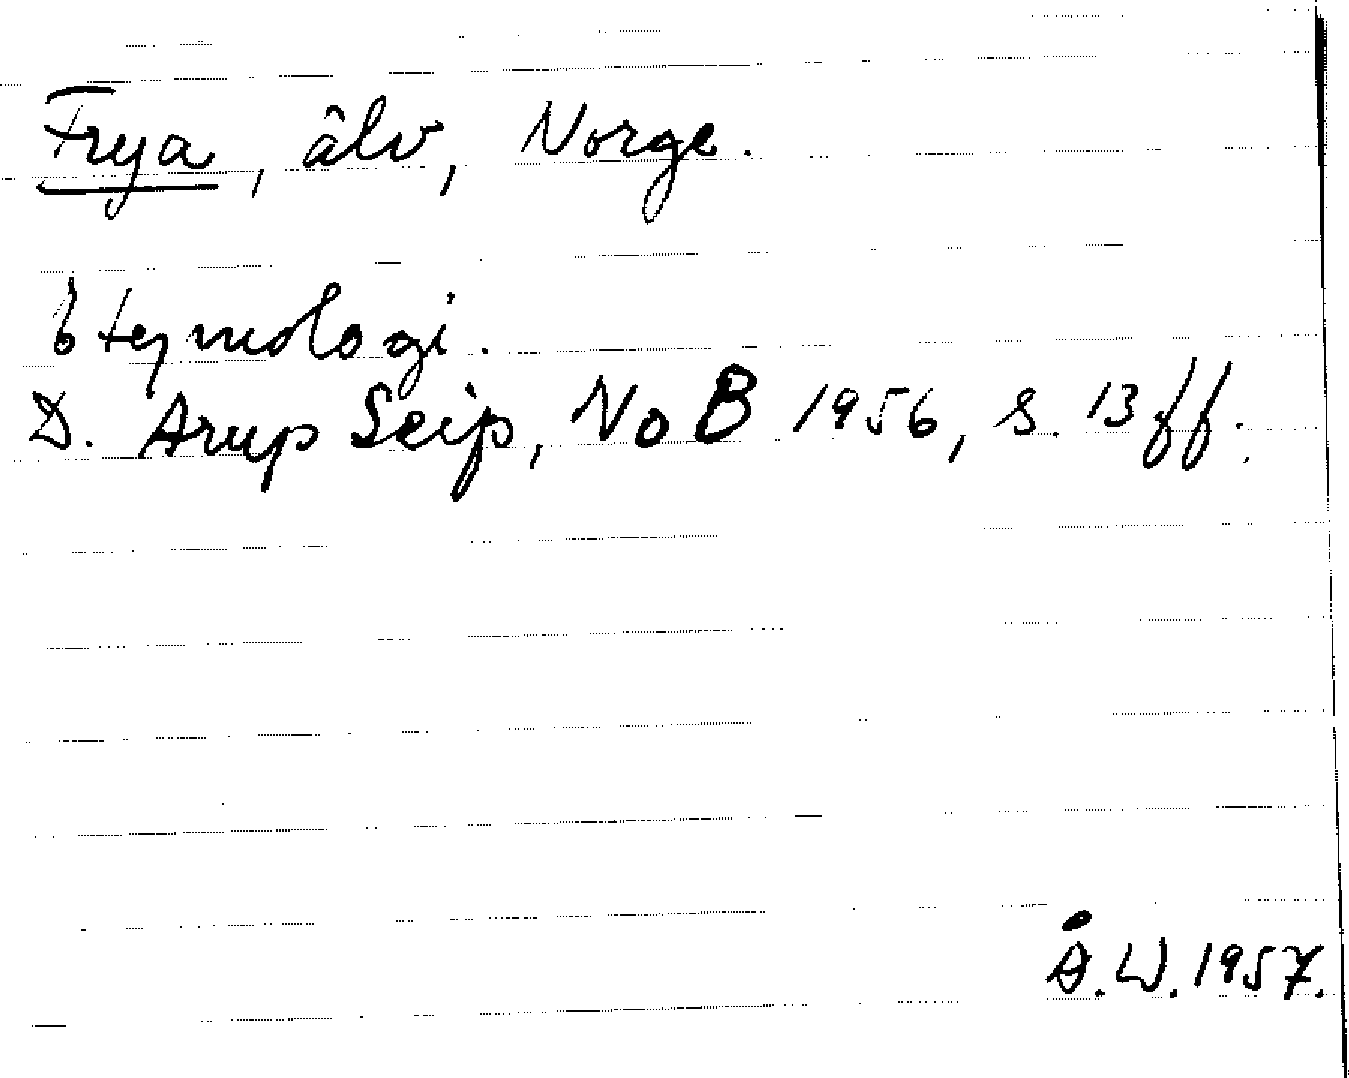 Frya, älv, Norge.
Etymologi.
D. Arup Seip, NoB 1956, s. 13 ff.
Å.W. 1957.